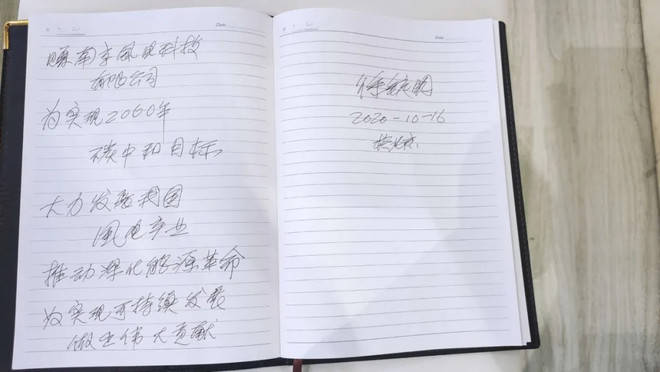 Date
愿南京風电科技
有限公司
为实现2060年
碳中和目标
大力发展我国
風电产业
推动深化能源革命
为实现可持续发展
做出伟大贡献
Date
2020-10-16